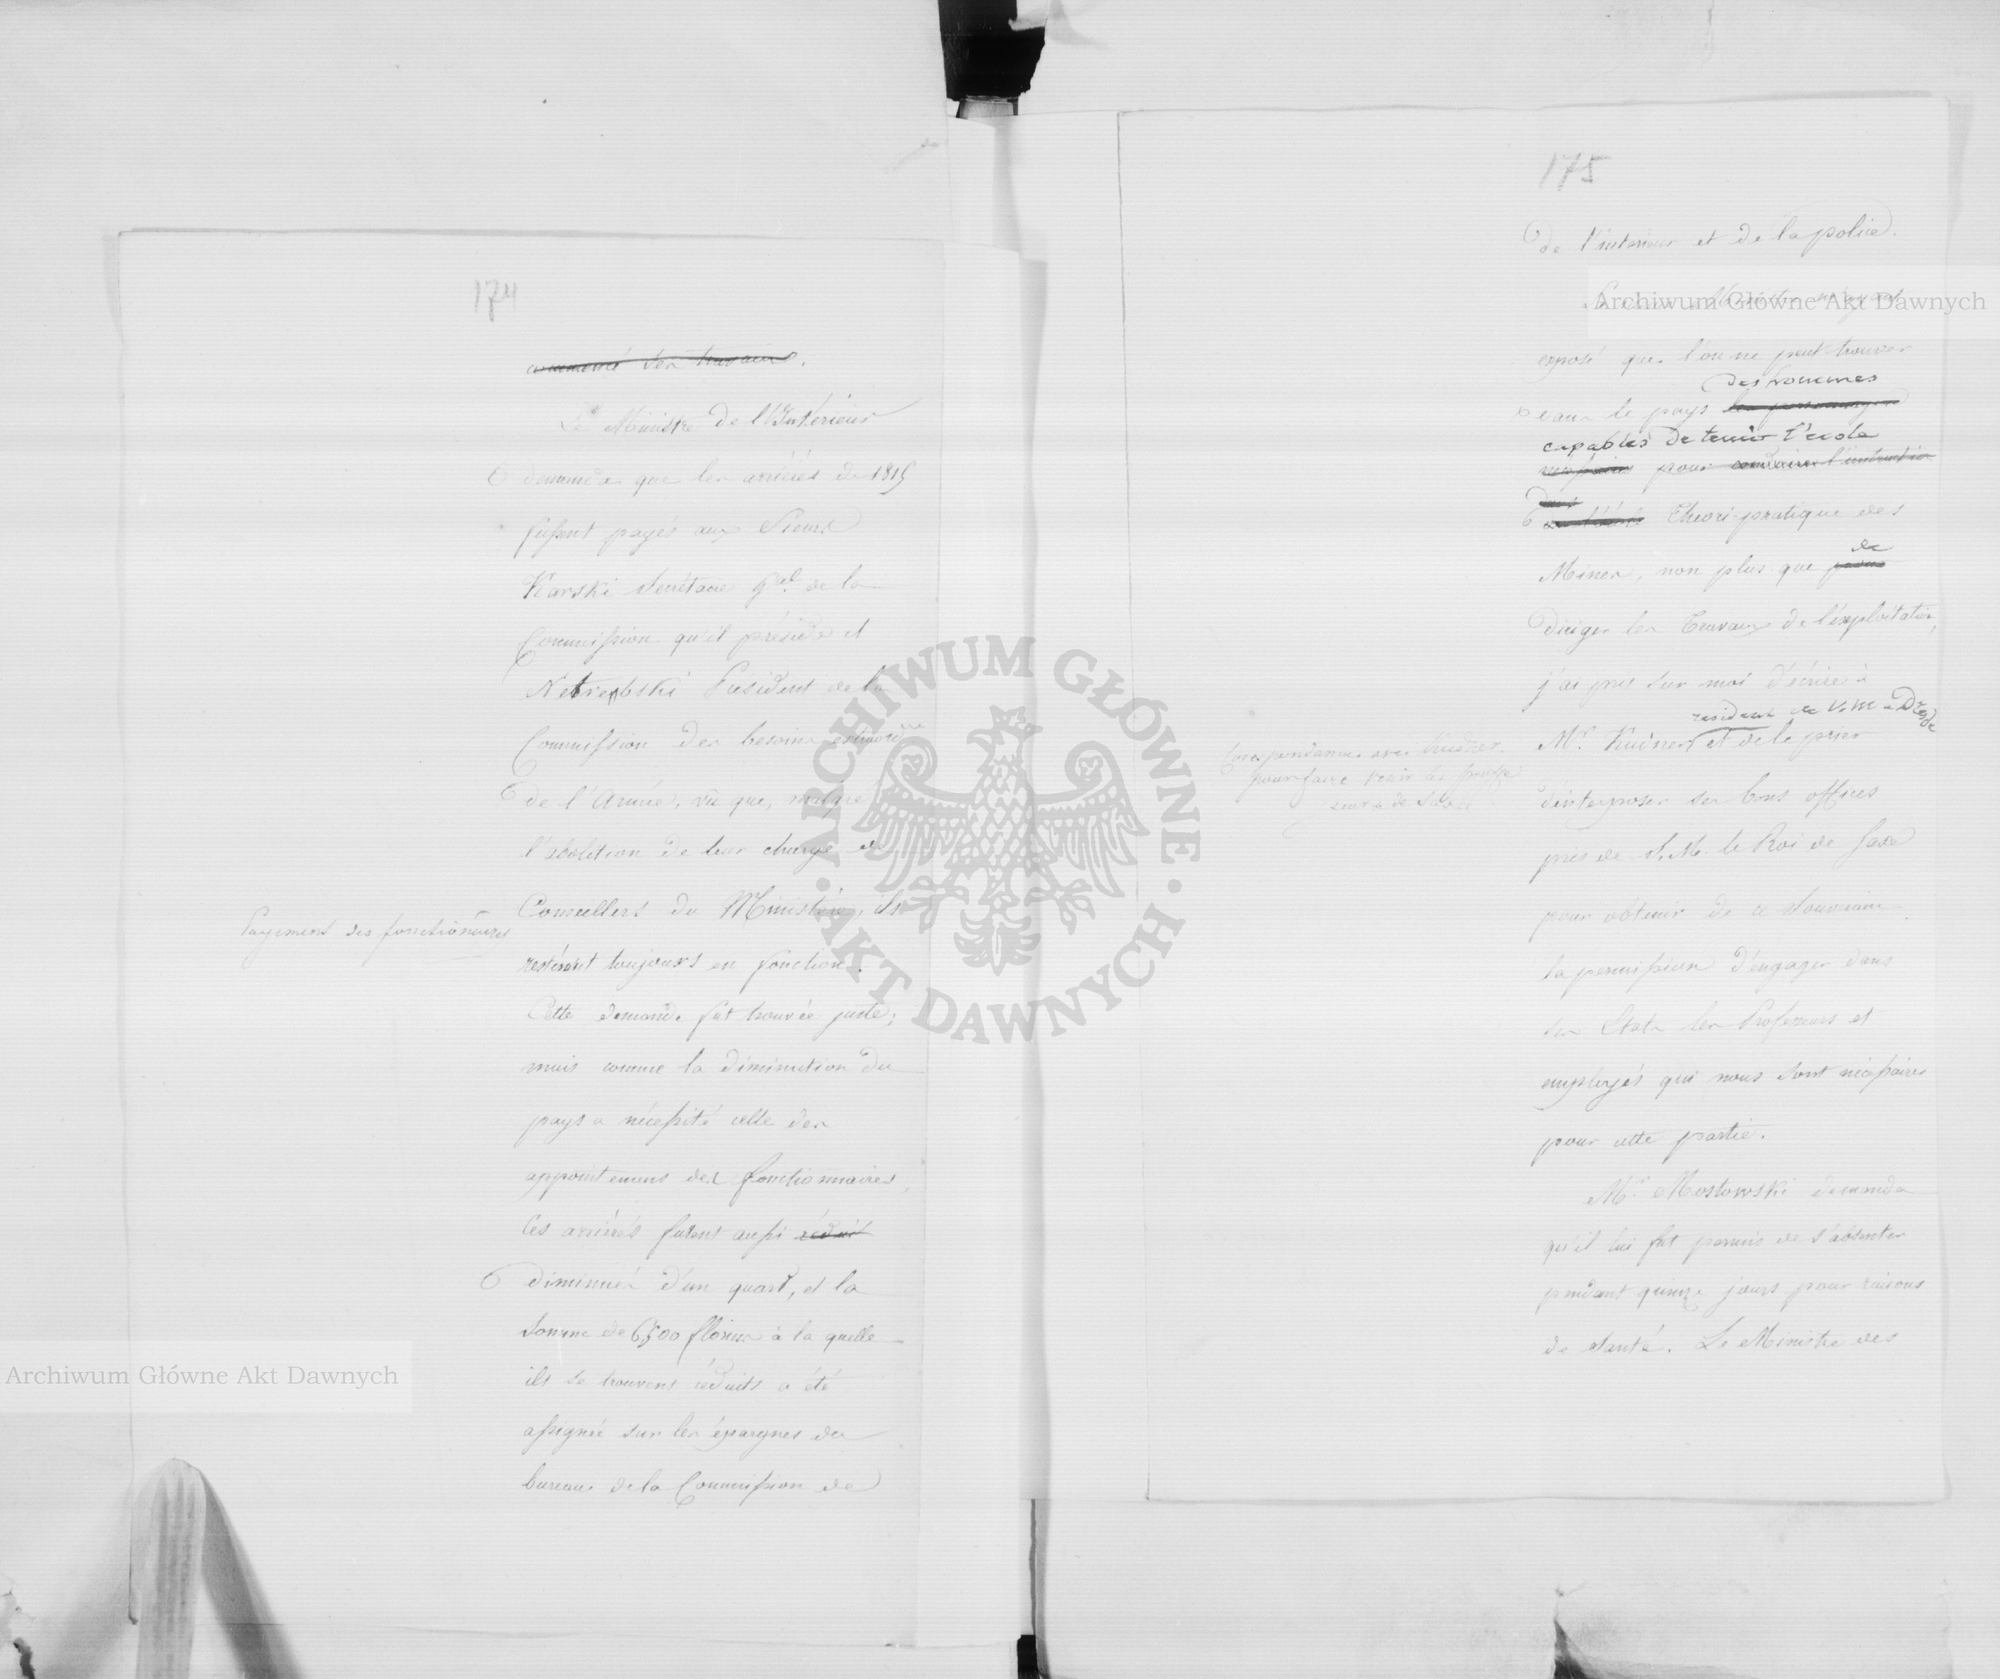 174
commencé des travaux.
Le Ministre de l'Intérieur
demanda que les arriérés de 1815
fussent payés aux Sieurs
Karski Secrétaire gal. de la
Commission qu'il préside et
Netrebski Président de la
Commission des besoins extraordres
de l'Armée, vû que, malgré
l'abolition de leur charge de
Conseillers du Ministère, ils
restèrent toujours en fonction.
Payement des fonctionaires
Cette demande fut trouvée juste;
mais comme la diminution du
pays a nécessité celle des
appointemens des fonctionnaires,
ces arriérés furent aussi réduit
diminués d'un quart, et la
somme de 6500 florins à la quelle
ils se trouvent réduits a été
assignée sur les épargnes du
bureau de la Commission de
175
de l'interieur et de la police.
exposé que l'on ne peut trouver
des hommes
dans le pays les personnages
capables de tenir l'école
nécessaires pour conduire l'instruction
dans
Theori-pratique des
de
Mines, non plus que pour
diriger les travaux de l'exploitation,
j'ai pris sur moi d'écrire à
resident de V. M. a Dresde
Mr. Kudner et de le prier
Correspondance avec Kudner
pour faire venir les profes
seurs de Saxe
d'interposer ses bons offices
près de S. M. le Roi de Saxe
pour obtenir de ce Souverain
la permission d'engager dans
ses Etats les Professeurs et
employés qui nous sont nécessaires
pour cette partie.
Mr. Mostowski demanda
qu'il lui fut permis de s'absenter
pendant quinze jours pour raisons
de santé. Le Ministre des
Archiwum Główne Akt Dawnych
Archiwum Główne Akt Dawnych
ARCHIWUM GŁÓWNE
AKT DAWNYCH